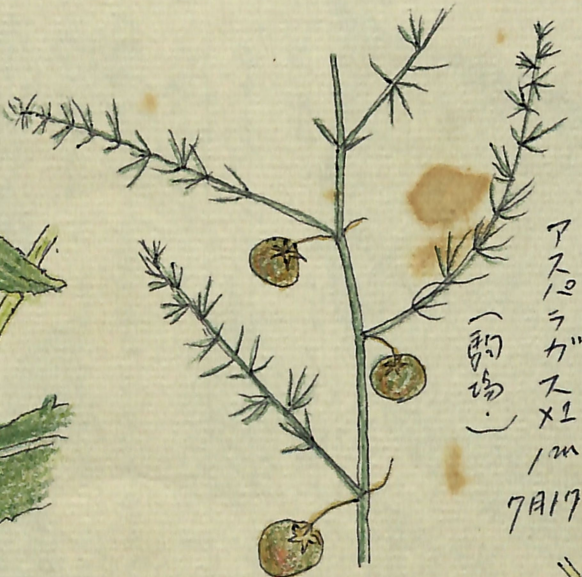 アスパラガス×1
1m
7月17
(駒場.)